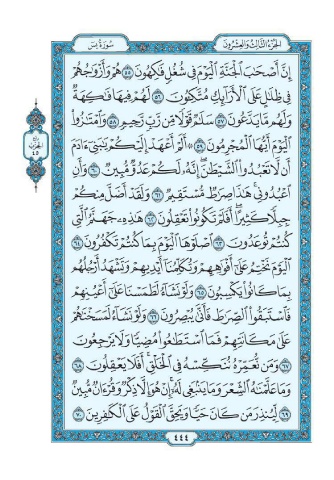 الجزء الثالث والعشرون
سورة يس
إِنَّ أَصْحَٰبَ ٱلْجَنَّةِ ٱلْيَوْمَ فِى شُغُلٍ فَٰكِهُونَ ٥٥ هُمْ وَأَزْوَٰجُهُمْ
فِى ظِلَٰلٍ عَلَى ٱلْأَرَآئِكِ مُتَّكِـُٔونَ ٥٦ لَهُمْ فِيهَا فَٰكِهَةٌ
وَلَهُم مَّا يَدَّعُونَ ٥٧ سَلَٰمٌ قَوْلًا مِّن رَّبٍّ رَّحِيمٍ ٥٨ وَٱمْتَٰزُوا۟
ٱلْيَوْمَ أَيُّهَا ٱلْمُجْرِمُونَ ٥٩ ۞ أَلَمْ أَعْهَدْ إِلَيْكُمْ يَٰبَنِىٓ ءَادَمَ
أَن لَّا تَعْبُدُوا۟ ٱلشَّيْطَٰنَ إِنَّهُۥ لَكُمْ عَدُوٌّ مُّبِينٌ ٦٠ وَأَنِ
ٱعْبُدُونِى هَٰذَا صِرَٰطٌ مُّسْتَقِيمٌ ٦١ وَلَقَدْ أَضَلَّ مِنكُمْ
جِبِلًّا كَثِيرًا أَفَلَمْ تَكُونُوا۟ تَعْقِلُونَ ٦٢ هَٰذِهِۦ جَهَنَّمُ ٱلَّتِى
كُنتُمْ تُوعَدُونَ ٦٣ ٱصْلَوْهَا ٱلْيَوْمَ بِمَا كُنتُمْ تَكْفُرُونَ ٦٤
ٱلْيَوْمَ نَخْتِمُ عَلَىٰٓ أَفْوَٰهِهِمْ وَتُكَلِّمُنَآ أَيْدِيهِمْ وَتَشْهَدُ أَرْجُلُهُم
بِمَا كَانُوا۟ يَكْسِبُونَ ٦٥ وَلَوْ نَشَآءُ لَطَمَسْنَا عَلَىٰٓ أَعْيُنِهِمْ
فَٱسْتَبَقُوا۟ ٱلصِّرَٰطَ فَأَنَّىٰ يُبْصِرُونَ ٦٦ وَلَوْ نَشَآءُ لَمَسَخْنَٰهُمْ
عَلَىٰ مَكَانَتِهِمْ فَمَا ٱسْتَطَٰعُوا۟ مُضِيًّا وَلَا يَرْجِعُونَ
٦٧ وَمَن نُّعَمِّرْهُ نُنَكِّسْهُ فِى ٱلْخَلْقِ أَفَلَا يَعْقِلُونَ ٦٨
وَمَا عَلَّمْنَٰهُ ٱلشِّعْرَ وَمَا يَنۢبَغِى لَهُۥٓ إِنْ هُوَ إِلَّا ذِكْرٌ وَقُرْءَانٌ مُّبِينٌ
٦٩ لِّيُنذِرَ مَن كَانَ حَيًّا وَيَحِقَّ ٱلْقَوْلُ عَلَى ٱلْكَٰفِرِينَ ٧٠
٤٤٤